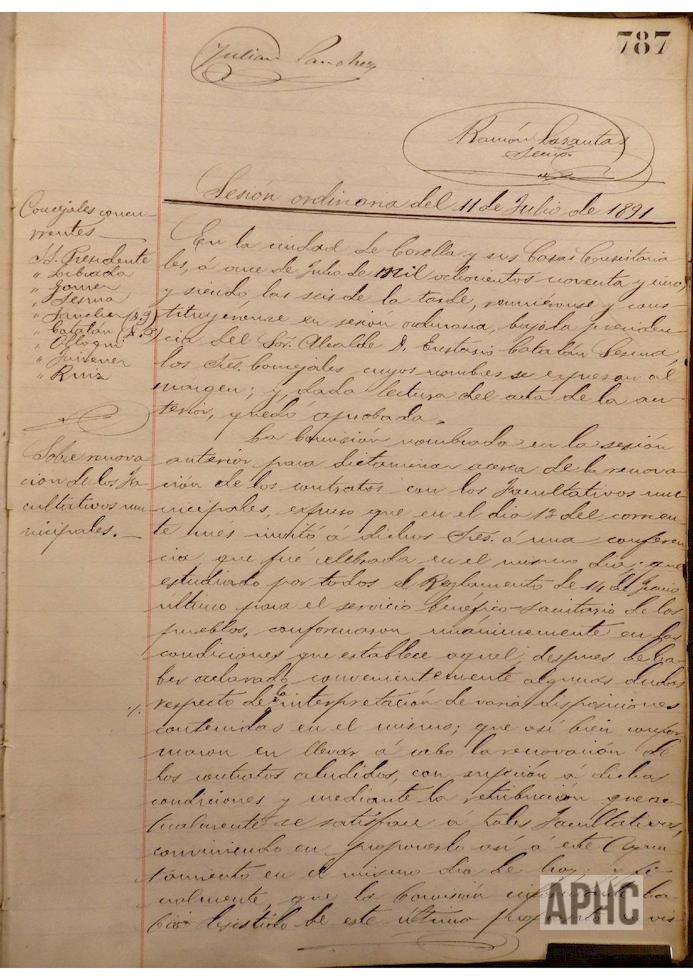 787
Julian Sanchez
Ramón
Secrio
Sesion ordinaria del 11 de Julio de 1891
Concejales concu-
rrentes
S. Presidente
" Librada
" Gomez
" Sesma
" Sanchez (D. J)
" Catalán (
"
" Jimenez
" Ruiz
En la ciudad de Corella y sus Casas Consistoria
les, á once de Julio de mil ochocientos noventa y uno,
y siendo las seis de la tarde, reuniéronse y cons
tituyéronse en sesión ordinaria, bajo la presiden-
cia del Sor. Alcalde D. Eustasio Catalán Sesma,
los Sres. Concejales cuyos nombres se expresan al
margen; y, dada lectura del acta de la an-
terior, quedó aprobada.
Sobre renova
ción de los fa-
cultativos mu-
nicipales. —
La Comision nombrada en la sesión
anterior para dictaminar acerca de la renova
ción de los contratos con los facultativos mu-
nicipales, expuso que en el dia 13 del corrien-
te mes invitó á dichos Sres. á una conferen
cia, que fué celebrada en el mismo dia; que
estudiado por todos el Reglamento de 14 de Junio
último para el servicio benéfico-sanitario de los
pueblos, conformaron unánimemente en las
condiciones que establece aquel, despues de ha-
ber aclarado convenientemente algunas dudas
respecto de la interpretación de varias disposiciones
contenidas en el mismo; que asi bien confor
maron en llevar á cabo la renovación de
los contratos aludidos, con sujeción á dichas
condiciones y mediante la retribución que ac-
tualmente se satisface á tales facultativos,
conviniendo en proponerlo asi á este Ayun
tamiento en el mismo dia de hoy; y fi-
nalmente, que la Comisión
desistido de este último
APHC